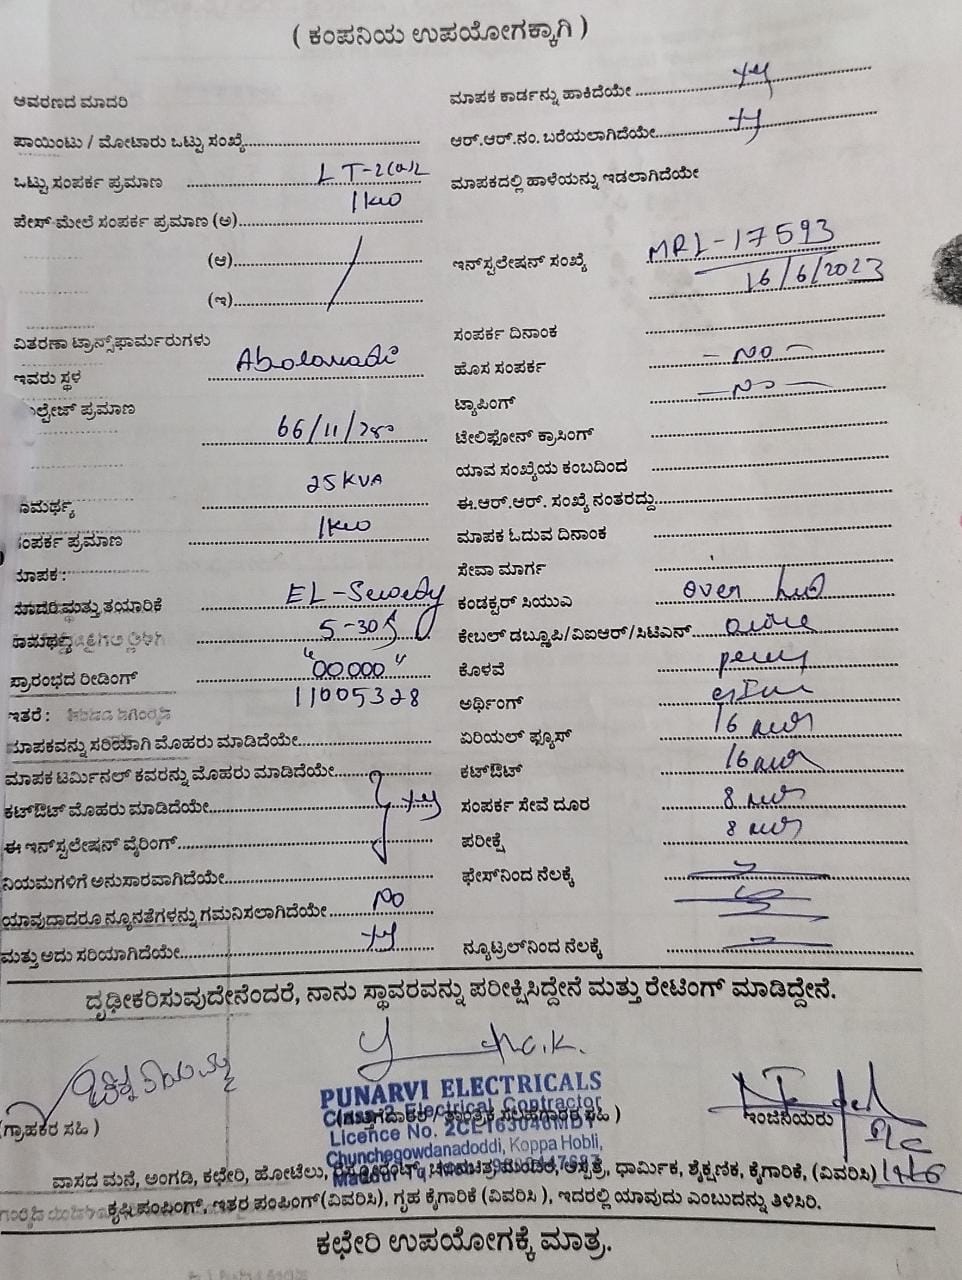 ( ಕಂಪನಿಯ ಉಪಯೋಗಕ್ಕಾಗಿ )
ಆವರಣದ ಮಾದರಿ
ಪಾಯಿಂಟು / ಮೋಟಾರು ಒಟ್ಟು ಸಂಖ್ಯೆ
ಒಟ್ಟು ಸಂಪರ್ಕ ಪ್ರಮಾಣ LT-2(a)2
ಪೇಸ್ ಮೇಲೆ ಸಂಪರ್ಕ ಪ್ರಮಾಣ (ಅ) 1kw
(ಆ)
(ಇ)
ವಿತರಣಾ ಟ್ರಾನ್ಸ್‌ಫಾರ್ಮರುಗಳು
ಇವರು ಸ್ಥಳ
ಪ್ರಮಾಣ
66/11/
25KVA
ಸಂಪರ್ಕ ಪ್ರಮಾಣ 1kw
ಮಾಪಕ :
ಮಾದರಿ ಮತ್ತು ತಯಾರಿಕೆ EL-Sewedy
5-30A
ಪ್ರಾರಂಭದ ರೀಡಿಂಗ್ "00.000"
ಇತರೆ : 11005328
ಮಾಪಕವನ್ನು ಸರಿಯಾಗಿ ಮೊಹರು ಮಾಡಿದೆಯೇ
ಮಾಪಕ ಟರ್ಮಿನಲ್ ಕವರನ್ನು ಮೊಹರು ಮಾಡಿದೆಯೇ
ಕಟ್‌ಔಟ್ ಮೊಹರು ಮಾಡಿದೆಯೇ yes
ಈ ಇನ್‌ಸ್ಟಲೇಷನ್ ವೈರಿಂಗ್
ನಿಯಮಗಳಿಗೆ ಅನುಸಾರವಾಗಿದೆಯೇ
ಯಾವುದಾದರೂ ನ್ಯೂನತೆಗಳನ್ನು ಗಮನಿಸಲಾಗಿದೆಯೇ No
ಮತ್ತು ಅದು ಸರಿಯಾಗಿದೆಯೇ yes
ಮಾಪಕ ಕಾರ್ಡನ್ನು ಹಾಕಿದೆಯೇ yes
ಆರ್.ಆರ್.ನಂ. ಬರೆಯಲಾಗಿದೆಯೇ yes
ಮಾಪಕದಲ್ಲಿ ಹಾಳೆಯನ್ನು ಇಡಲಾಗಿದೆಯೇ
ಇನ್‌ಸ್ಟಲೇಷನ್ ಸಂಖ್ಯೆ MRL-17593
16/6/2023
ಸಂಪರ್ಕ ದಿನಾಂಕ
ಹೊಸ ಸಂಪರ್ಕ - NO -
ಟ್ಯಾಪಿಂಗ್ - No -
ಟೇಲಿಫೋನ್ ಕ್ರಾಸಿಂಗ್
ಯಾವ ಸಂಖ್ಯೆಯ ಕಂಬದಿಂದ
ಈ.ಆರ್.ಆರ್. ಸಂಖ್ಯೆ ನಂತರದ್ದು
ಮಾಪಕ ಓದುವ ದಿನಾಂಕ
ಸೇವಾ ಮಾರ್ಗ
ಕಂಡಕ್ಟರ್ ಸಿಯುಎ over
ಕೇಬಲ್ ಡಬ್ಲೂಪಿ/ವಿಐಆರ್/ಸಿಟಿಎನ್
ಕೊಳವೆ
ಅರ್ಥಿಂಗ್
ಏರಿಯಲ್ ಫ್ಯೂಸ್ 16
ಕಟ್‌ಔಟ್ 16
ಸಂಪರ್ಕ ಸೇವೆ ದೂರ 8
ಪರೀಕ್ಷೆ 8
ಫೇಸ್‌ನಿಂದ ನೆಲಕ್ಕೆ
ನ್ಯೂಟ್ರಲ್‌ನಿಂದ ನೆಲಕ್ಕೆ
ದೃಢೀಕರಿಸುವುದೇನೆಂದರೆ, ನಾನು ಸ್ಥಾವರವನ್ನು ಪರೀಕ್ಷಿಸಿದ್ದೇನೆ ಮತ್ತು ರೇಟಿಂಗ್ ಮಾಡಿದ್ದೇನೆ.
PUNARVI ELECTRICALS
Electrical Contractor
Licence No. 2CL163046MDY
Chunchegowdanadoddi, Koppa Hobli,
(ಗ್ರಾಹಕರ ಸಹಿ )
ಇಂಜಿನಿಯರು
ವಾಸದ ಮನೆ, ಅಂಗಡಿ, ಕಛೇರಿ, ಹೋಟೆಲು, ಧಾರ್ಮಿಕ, ಶೈಕ್ಷಣಿಕ, ಕೈಗಾರಿಕೆ, (ವಿವರಿಸಿ)
ಕೃಷಿ ಪಂಪಿಂಗ್, ಇತರ ಪಂಪಿಂಗ್ (ವಿವರಿಸಿ), ಗೃಹ ಕೈಗಾರಿಕೆ (ವಿವರಿಸಿ ), ಇದರಲ್ಲಿ ಯಾವುದು ಎಂಬುದನ್ನು ತಿಳಿಸಿರಿ.
ಕಛೇರಿ ಉಪಯೋಗಕ್ಕೆ ಮಾತ್ರ.